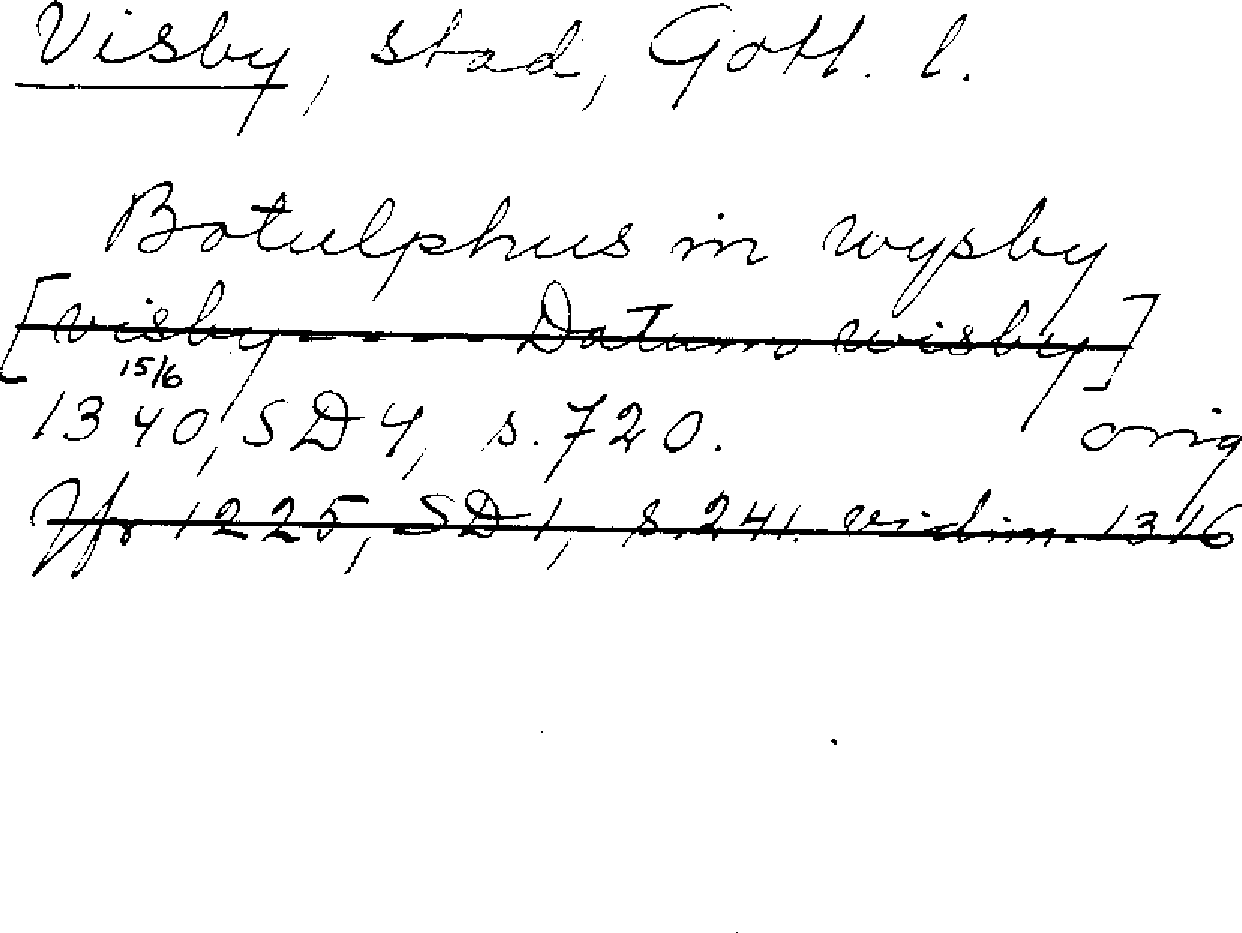 Visby, stad, Gotl. l.
Botulphus in wysby
[visby --- Datum wisby]
15/6
1340, SD 4, s. 720. orig
Jfr 1225, SD 1, s. 241. vidim. 1316